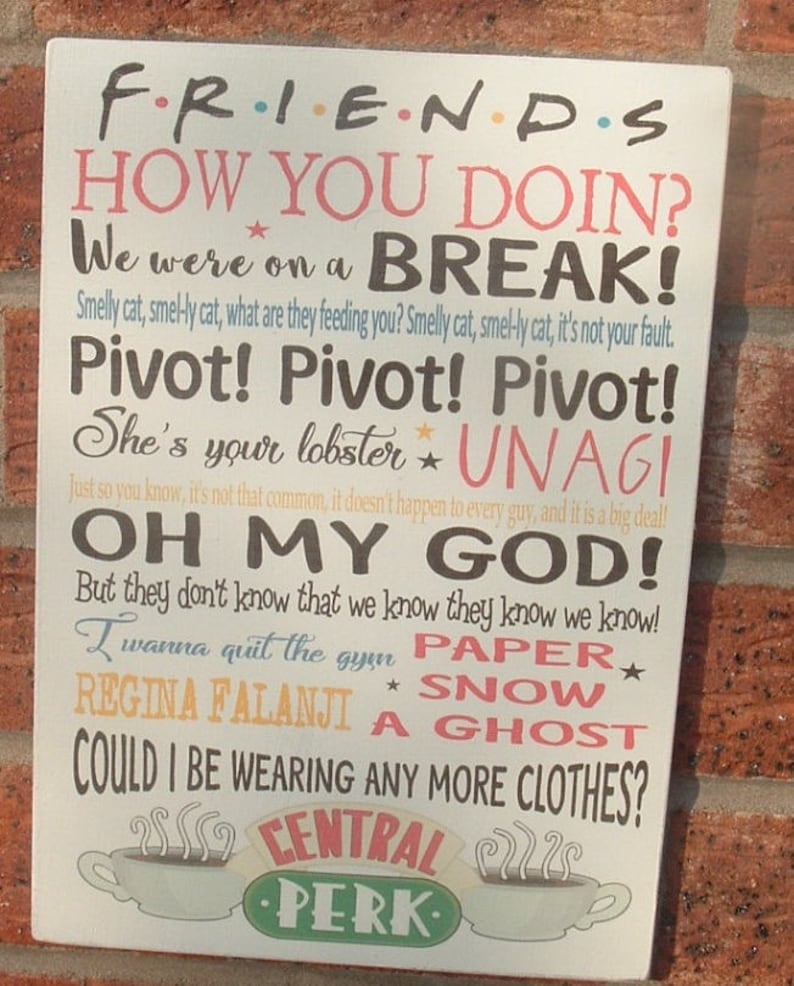 F·R·I·E·N·D·S
HOW YOU DOIN?
We were on a BREAK!
Smelly cat, smel-ly cat, what are they feeding you? Smelly cat, smel-ly cat, it's not your fault.
Pivot! Pivot! Pivot!
She's your lobster UNAGI
Just so you know, it's not that common, it doesn't happen to every guy, and it is a big deal!
OH MY GOD!
But they don't know that we know they know we know!
I wanna quit the gym
PAPER
SNOW
A GHOST
REGINA FALANJI
COULD I BE WEARING ANY MORE CLOTHES?
CENTRAL
·PERK·